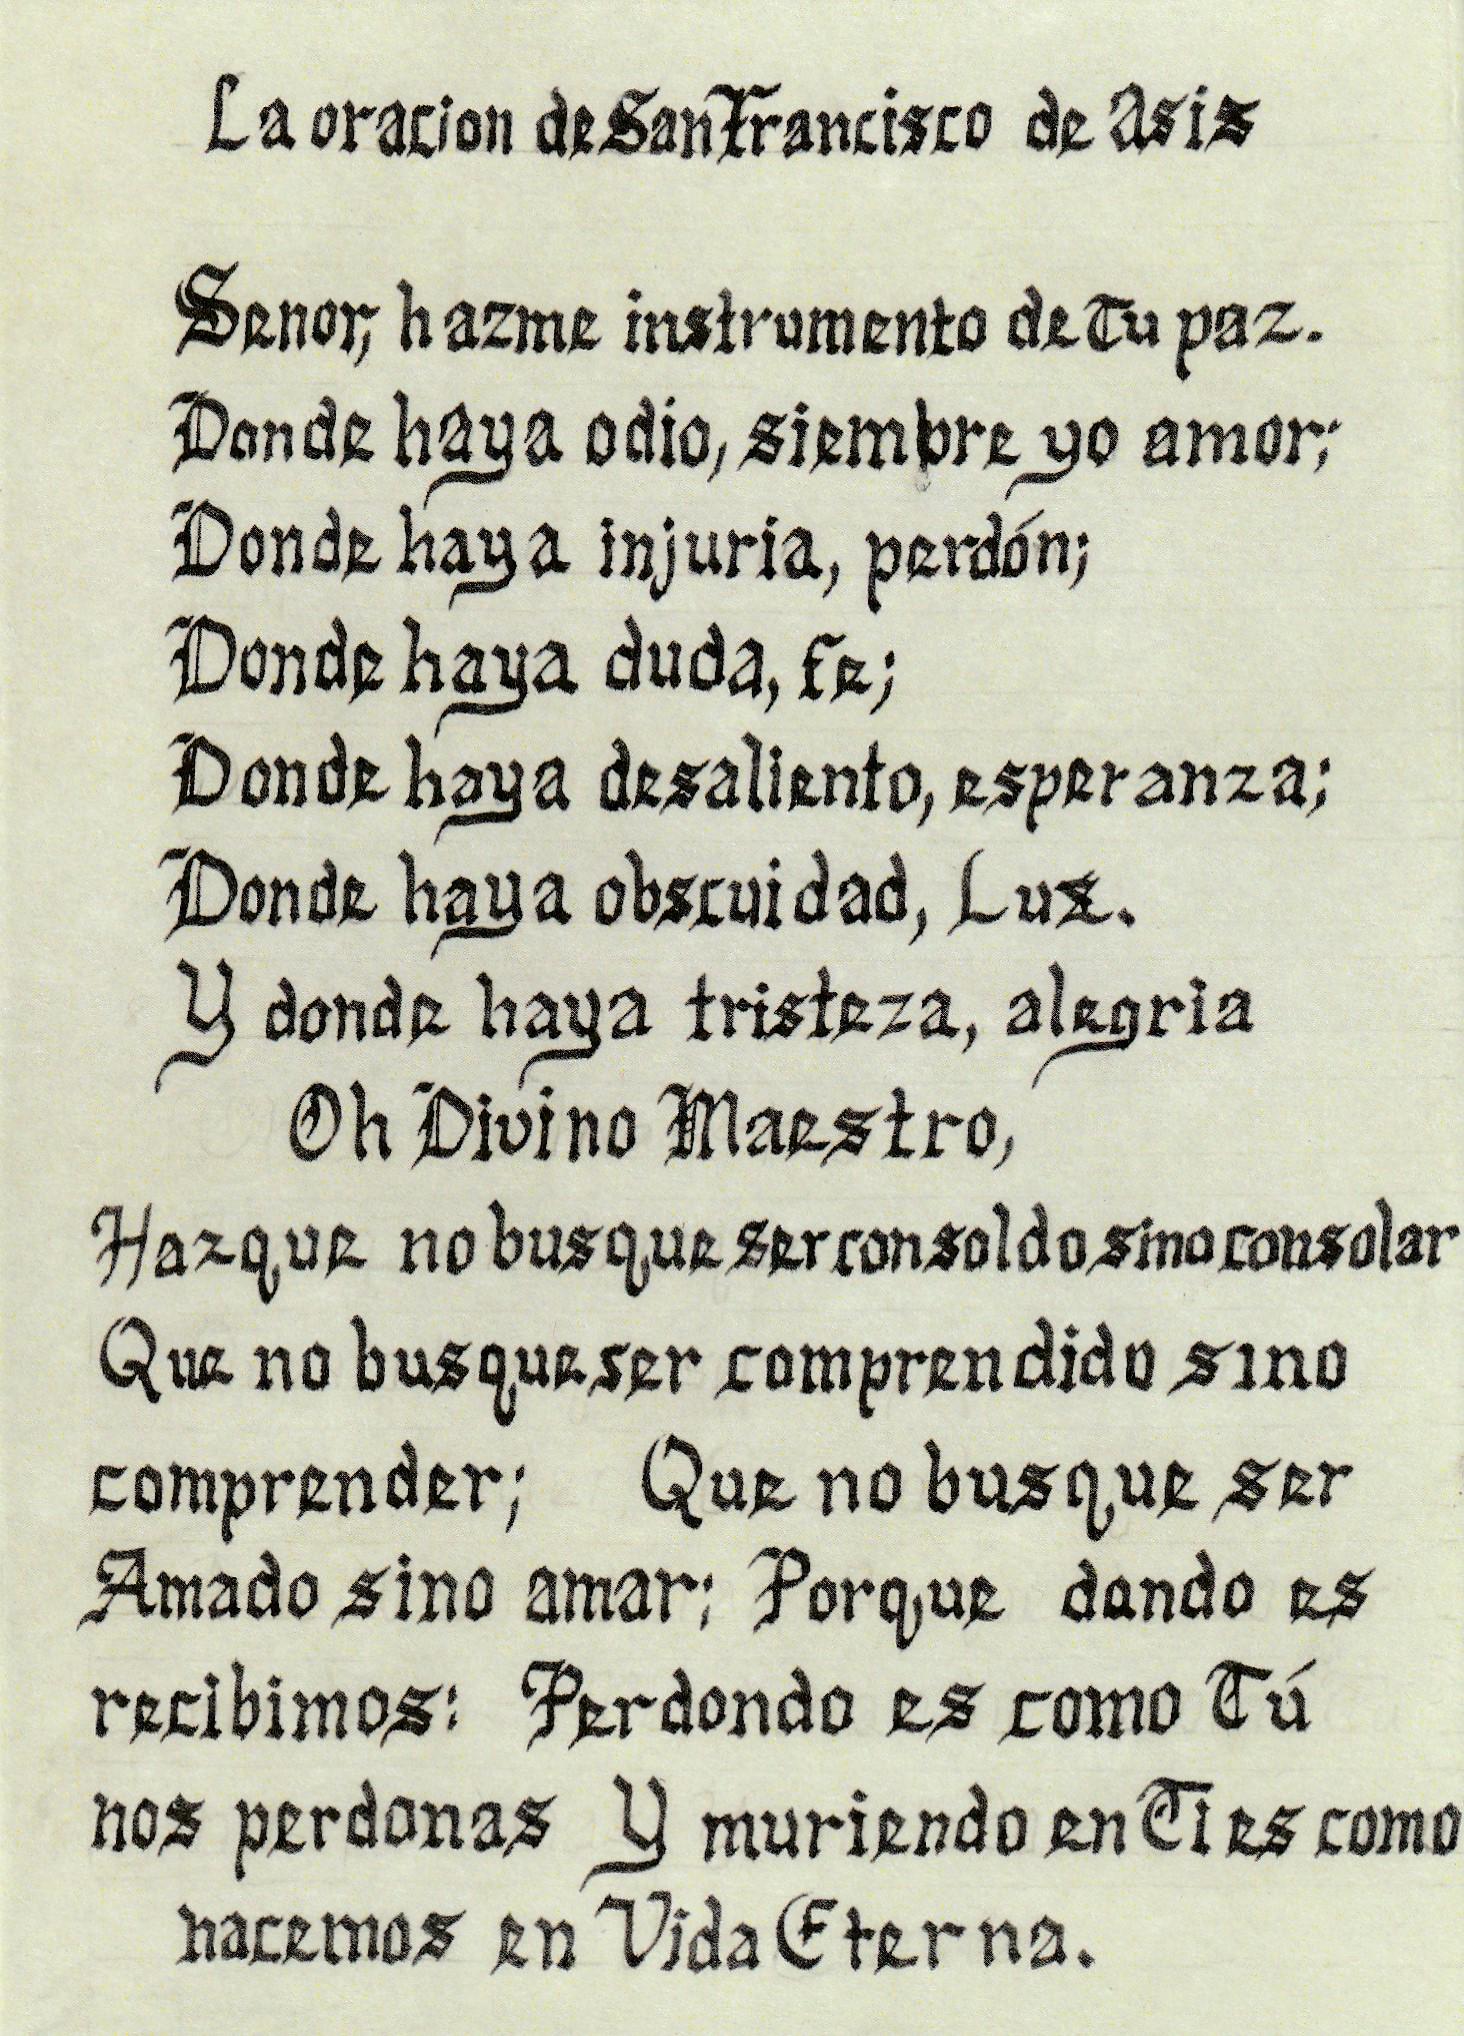 La oracion de San Francisco de Asis
Senor, hazme instrumento de Tu paz.
Donde haya odio, siembre yo amor;
Donde haya injuria, perdón;
Donde haya duda, fe;
Donde haya desaliento, esperanza;
Donde haya obscuidad, Luz.
Y donde haya tristeza, alegria
Oh Divino Maestro,
Haz que no busque ser consoldo sino consolar
Que no busque ser comprendido sino
comprender; Que no busque ser
Amado sino amar; Porque dando es
recibimos: Perdondo es como Tú
nos perdonas Y muriendo en Ti es como
nacemos en Vida Eterna.